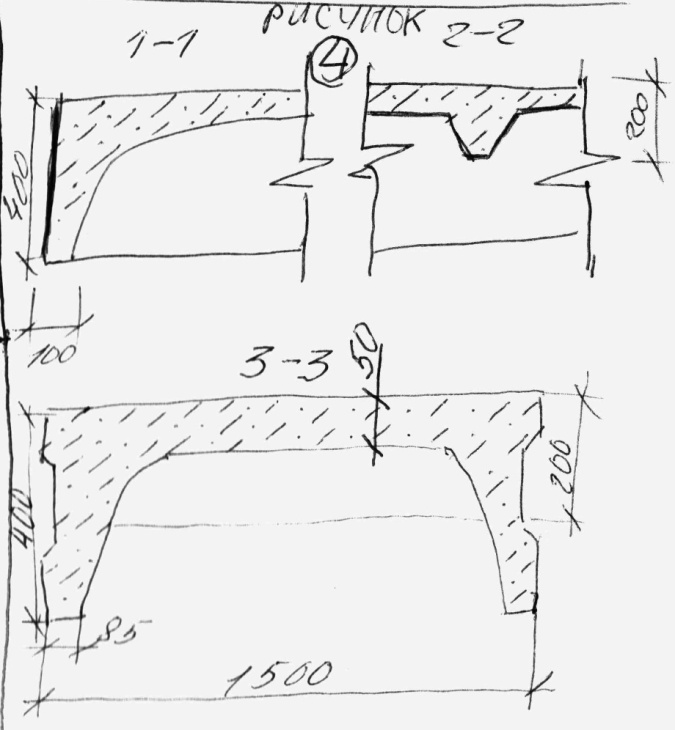 РИСУНОК
1-1
4
2-2
200
400
100
3-3
50
400
200
85
1500